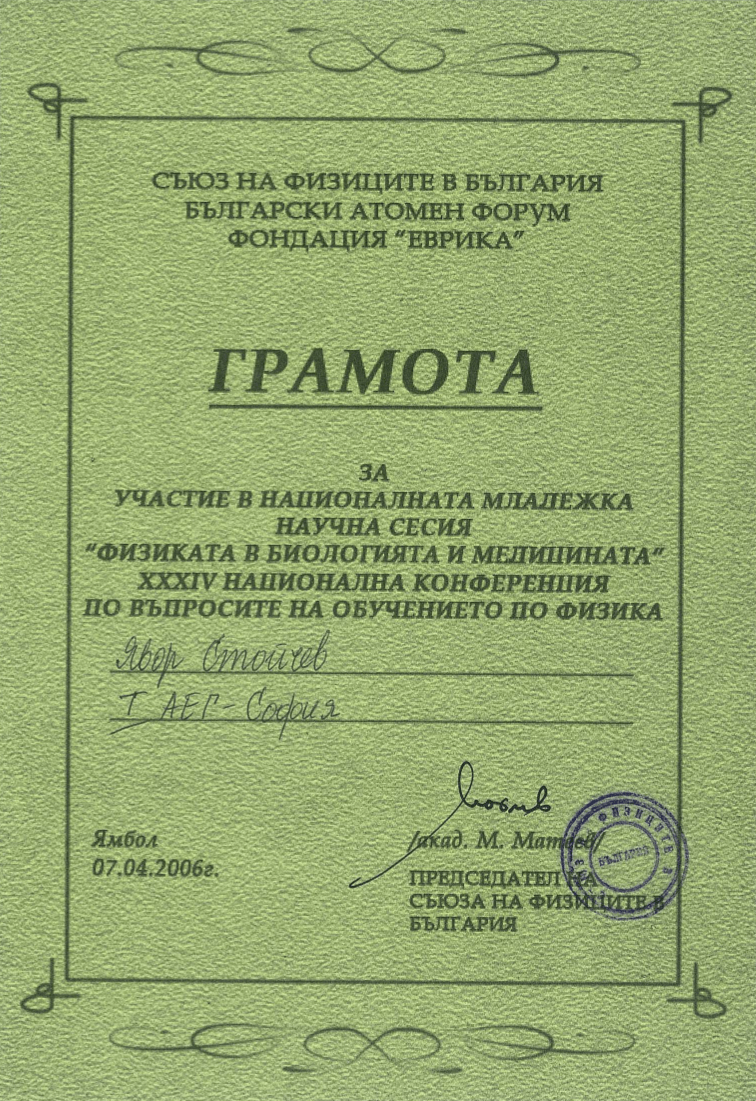 СЪЮЗ НА ФИЗИЦИТЕ В БЪЛГАРИЯ
БЪЛГАРСКИ АТОМЕН ФОРУМ
ФОНДАЦИЯ “ЕВРИКА”
ГРАМОТА
ЗА
УЧАСТИЕ В НАЦИОНАЛНАТА МЛАДЕЖКА
НАУЧНА СЕСИЯ
“ФИЗИКАТА В БИОЛОГИЯТА И МЕДИЦИНАТА”
XXXIV НАЦИОНАЛНА КОНФЕРЕНЦИЯ
ПО ВЪПРОСИТЕ НА ОБУЧЕНИЕТО ПО ФИЗИКА
Явор Стойчев
I АЕГ - София
Ямбол
07.04.2006г.
/акад. М. Матеев/
ПРЕДСЕДАТЕЛ НА
СЪЮЗА НА ФИЗИЦИТЕ В
БЪЛГАРИЯ
ФИЗИЦИТЕ В
БЪЛГАРИЯ